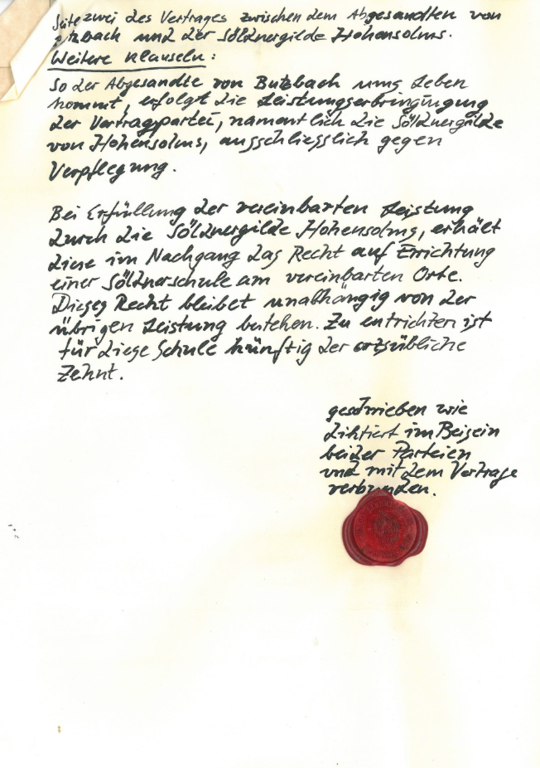 Seite zwei des Vertrages zwischen dem Abgesandten von
Butzbach und der Söldnergilde Hohensolms.
Weitere Klauseln:
So der Abgesandte von Butzbach ums Leben
kommt, erfolgt die Leistungserbringung
der Vertragpartei, namentlich die Söldnergilde
von Hohensolms, ausschliesslich gegen
Verpflegung.
Bei Erfüllung der vereinbarten Leistung
durch die Söldnergilde Hohensolms, erhält
diese im Nachgang das Recht auf Errichtung
einer Söldnerschule am vereinbarten Orte.
Dieses Recht bleibet unabhängig von der
übrigen Leistung bestehen. Zu entrichten ist
für diese Schule künftig der ortsübliche
Zehnt.
geschrieben wie
diktiert im Beisein
beider Parteien
und mit dem Vertrage
verbunden.